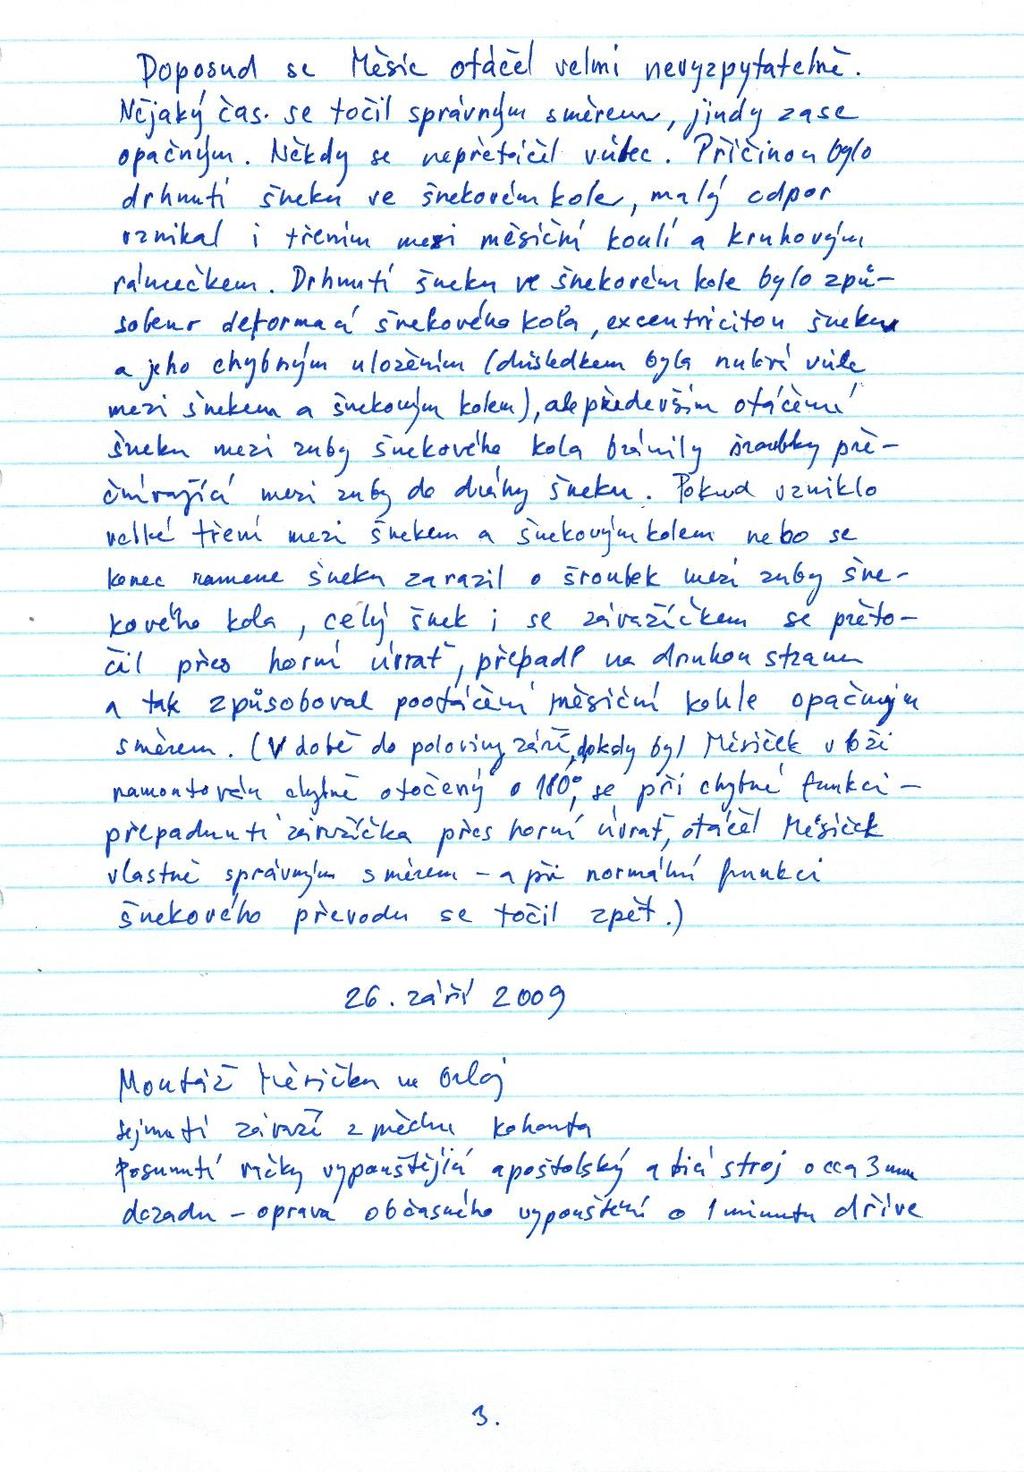 Doposud se Měsíc otáčel velmi nevyzpytatelně.
Nějaký čas se točil správným směrem, jindy zase
opačným. Někdy se nepřetáčel vůbec. Příčinou bylo
drhnutí šneku ve šnekovém kole, malý odpor
vznikal i třením mezi měsíční koulí a kruhovým
rámečkem. Drhnutí šneku ve šnekovém kole bylo způ-
sobeno deformací šnekového kola, excentricitou šneku
a jeho chybným uložením (důsledkem byla nutná vůle
mezi šnekem a šnekovým kolem), ale především otáčení
šneku mezi zuby šnekového kola bránily šroubky pře-
čnívající mezi zuby do dráhy šneku. Pokud vzniklo
velké tření mezi šnekem a šnekovým kolem nebo se
konec ramene šneku zarazil o šroubek mezi zuby šne-
kového kola, celý šnek i se závažíčkem se přeto-
čil přes horní úvrať, přepadl na druhou stranu
a tak způsoboval pootáčení měsíční koule opačným
směrem. (V době do poloviny září, dokdy byl Měsíček v
namontován chybně otočený o 180°, se při chybné funkci –
přepadnutí závažíčka přes horní úvrať, otáčel Měsíček
vlastně správným směrem – a při normální funkci
šnekového převodu se točil zpět.)
26. září 2009
Montáž Měsíčku na Orloj
Sejmutí závaží z měchu kohouta
Posunutí ráčky vypouštějící apoštolský a bicí stroj o cca 3 mm
dozadu – oprava občasného vypouštění o 1 minutu dříve
3.